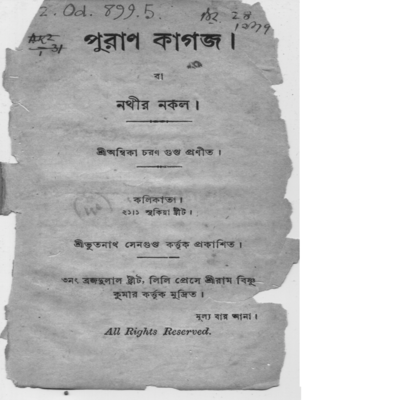 2. Od. 899.5.
182. 28
পুরাণ কাগজ।
বা
নথীর নকল।
শ্রীঅম্বিকা চরণ গুপ্ত প্রণীত।
কলিকাতা।
শ্রীভুতনাথ সেনগুপ্ত কর্ত্তৃক প্রকাশিত।
৩নং ব্রজদুলাল ষ্ট্রীট, লিলি প্রেসে শ্রীরাম বিষ্ণু
কুমার কর্ত্তৃক মুদ্রিত।
মূল্য বার আনা।
All Rights Reserved.